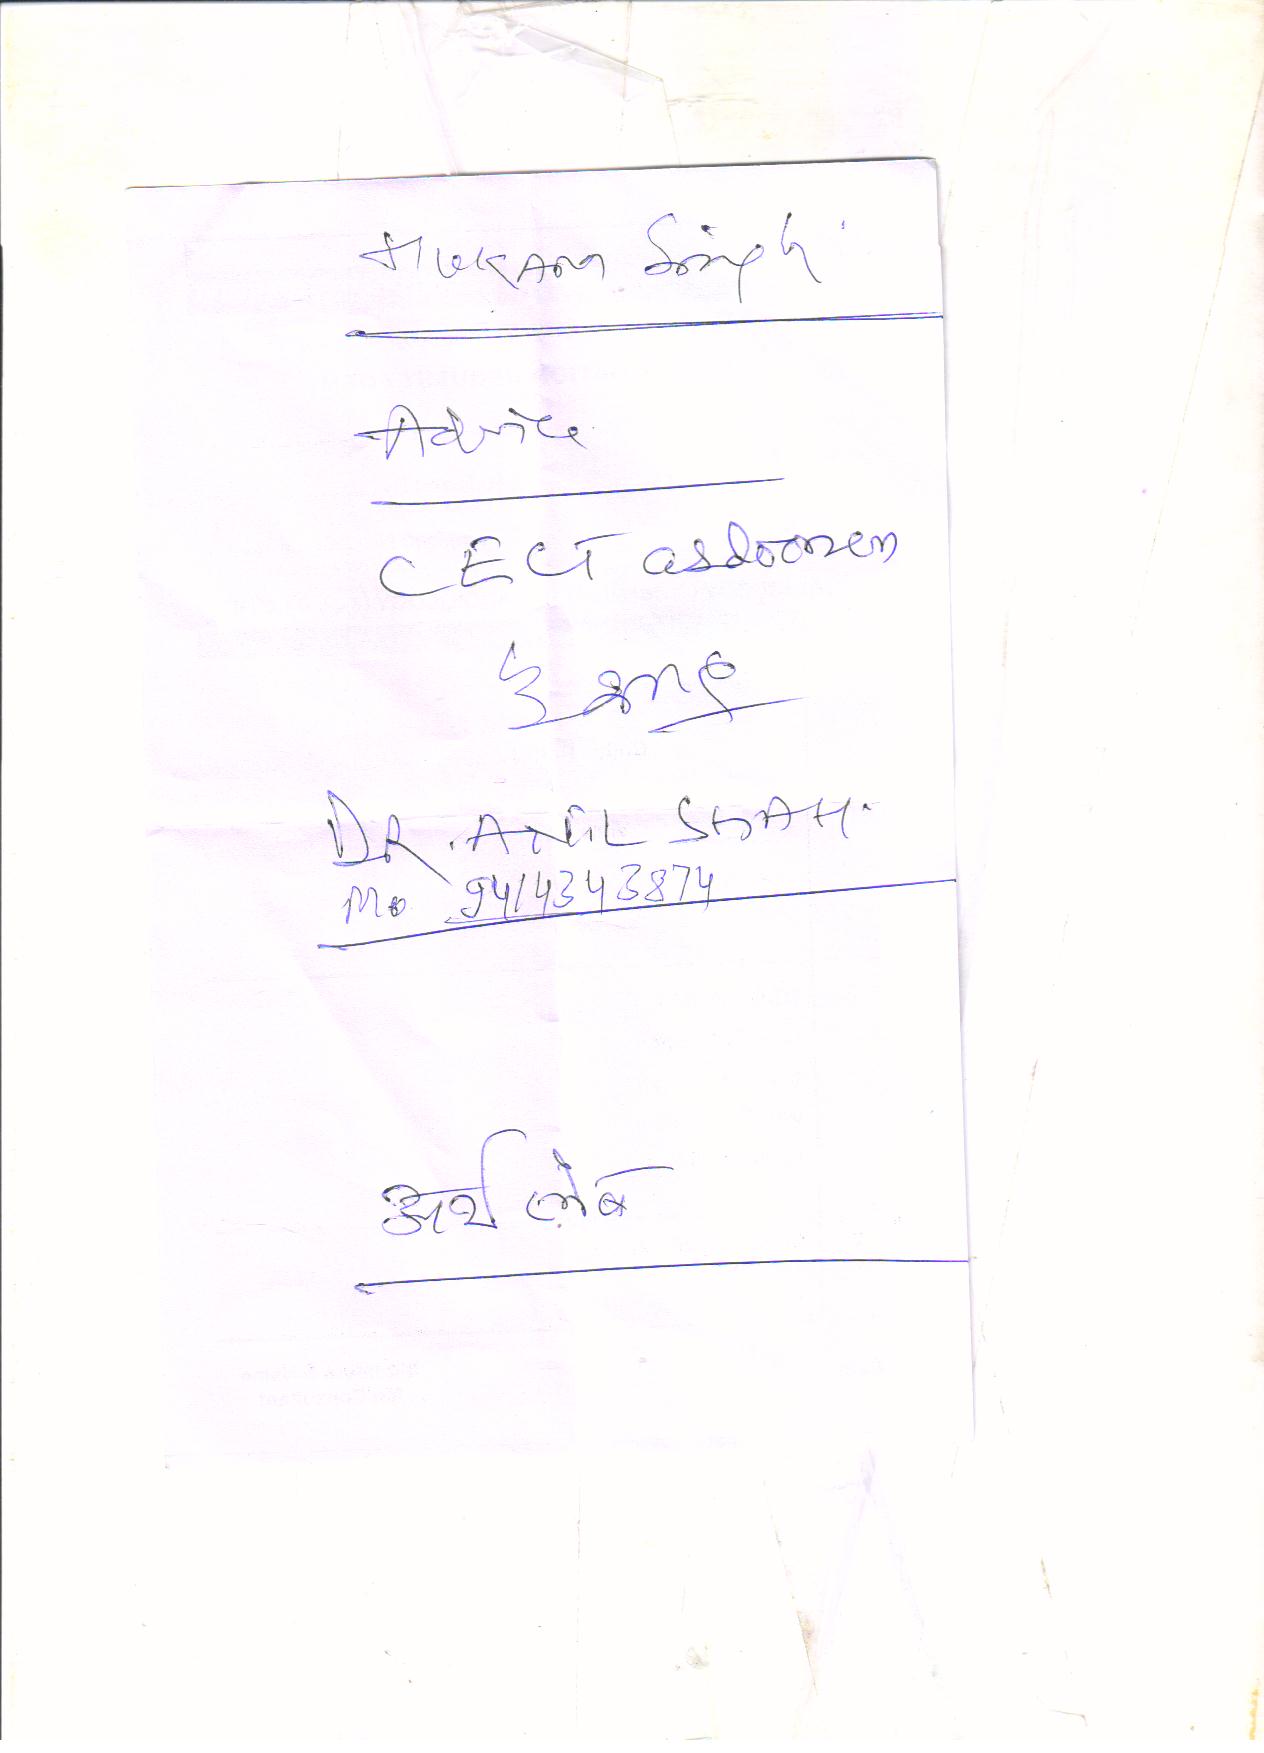 Hukam Singh
Advice
CECT abdomen
DR. ANIL SHAH.
Mo 9414343874
अर्थ लैब